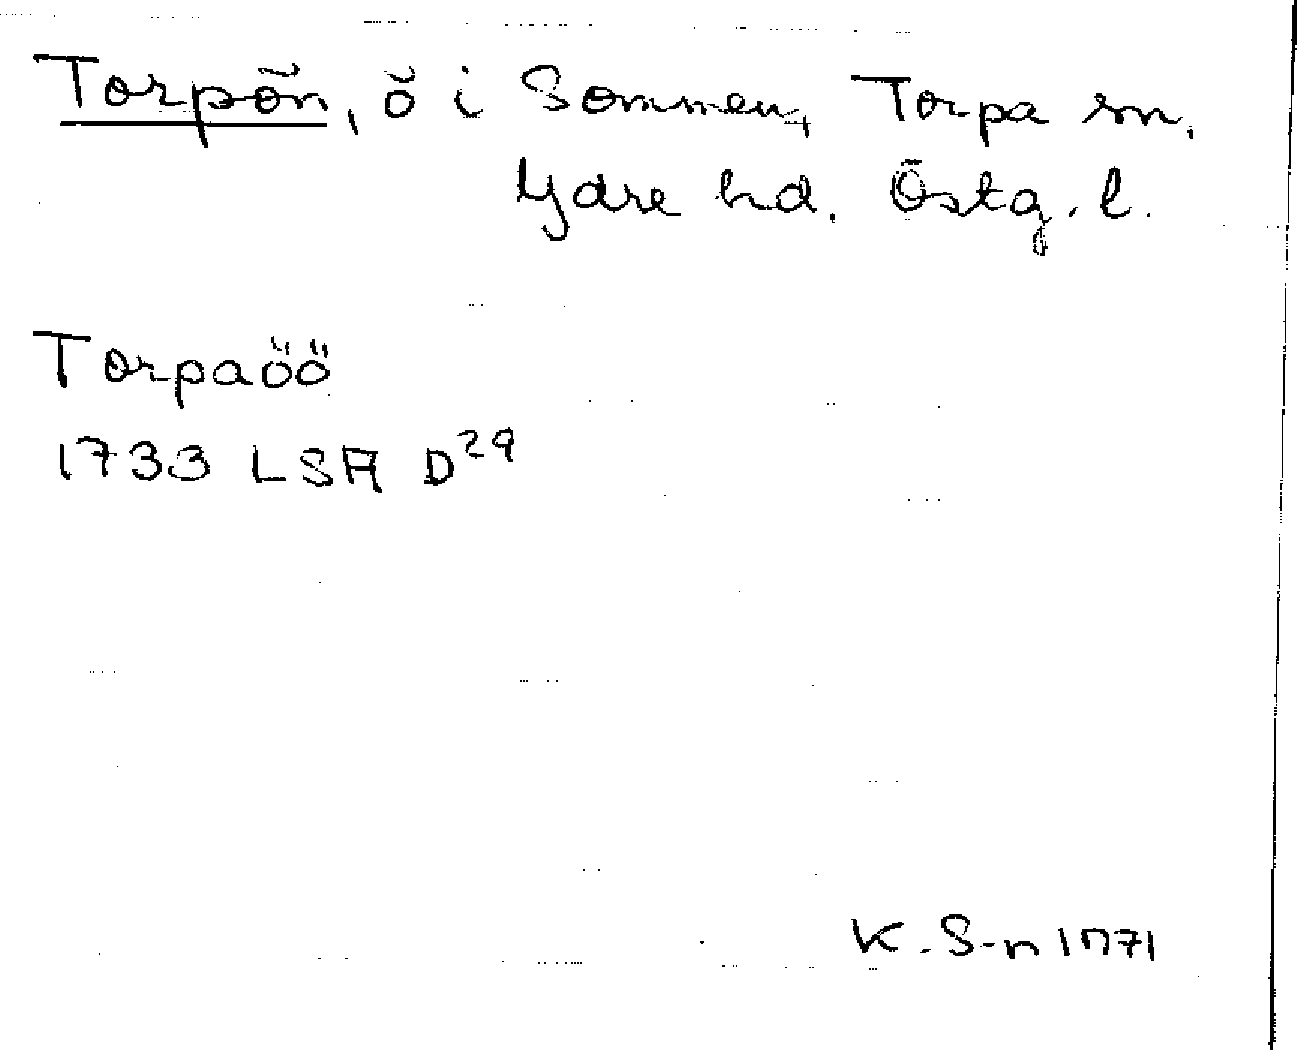 Torpön, ö i Sommen, Torpa sn.
Ydre hd. Östg. l.
Torpaöö
1733 LSA D29
K. S-n 1971